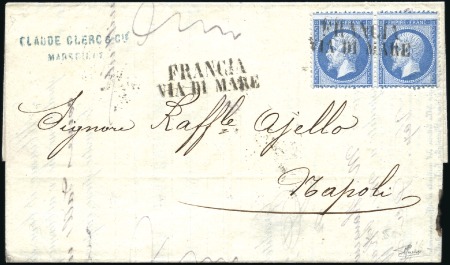 CLAUDE CLERC & Cie
MARSEILLE
FRANCIA
VIA DI MARE
FRANCIA
VIA DI MARE
Signore Raffle Ajello
Napoli